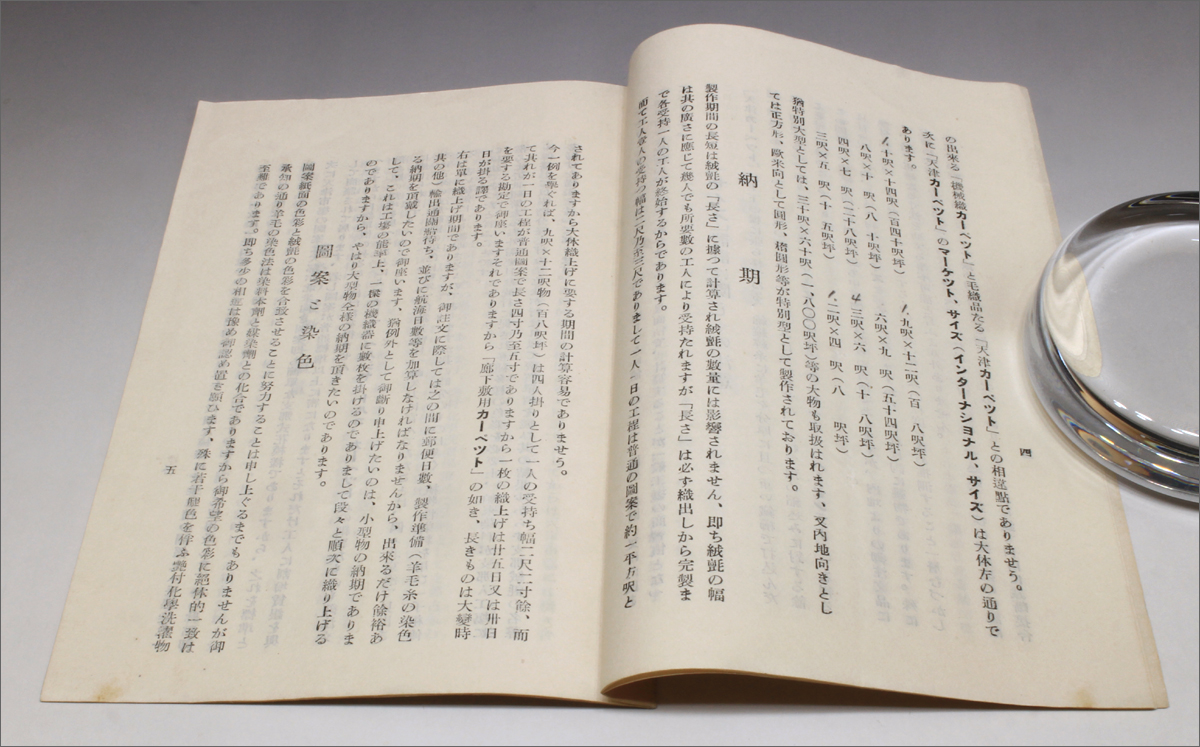 四
の出來る「機械織カーペット」と毛織品たる「天津カーペット」との相違點でありませう。
次に「天津カーペット」のマーケット、サイズ（インターナショナル、サイズ）は大体左の通りで
あります。
十呎×十四呎（百四十呎坪）
九呎×十二呎（百　八呎坪）
八呎×十　呎（八　十呎坪）
六呎×九　呎（五十四呎坪）
四呎×七　呎（二十八呎坪）
三呎×六　呎（十　八呎坪）
三呎×五　呎（十　五呎坪）
二呎×四　呎（八　　呎坪）
猶特別大型としては、三十呎×六十呎（一、八〇〇呎坪）等の大物も取扱はれます、又内地向きとし
ては正方形、歐米向として圓形、楕圓形等が特別型として製作されております。
納期
製作期間の長短は絨氈の「長さ」に據つて計算され絨氈の數量には影響されません、即ち絨氈の幅
は其の廣さに應じて幾人でも所要數の工人により受持たれますが「長さ」は必ず織出しから完製ま
で各受持一人の工人が終始するからであります。
而て工人壹人の受持つ幅は二尺乃至三尺でありまして一人一日の工程は普通の圖案で約一平方呎と
されてありますから大体織上げに要する期間の計算容易でありませう。
今一例を擧ぐれば、九呎×十二呎物（百八呎坪）は四人掛りとして一人の受持ち幅二尺二寸餘、而
て其れが一日の工程が普通圖案で長さ四寸乃至五寸でありますから一枚の織上げは廿五日又は卅日
を要する勘定で御座いますそれでありますから「廊下敷用カーペット」の如き、長きものは大變時
日が掛る譯であります。
右は單に織上げ期間でありますが、御註文に際しては之の間に郵便日數、製作準備（羊毛糸の染色
其の他）輸出通關暗待ち、並びに航海日數等を加算しなければなりませんから、出來るだけ餘裕あ
る納期を頂戴したいので御座います、猶例外として御斷り申上げたいのは、小型物の納期でありま
して、これは工場の能率上、一機の機織器に數枚を掛けるのでありまして段々と順次に織り上げる
のでありますから、やはり大型物仝樣の納期を頂きたいのであります。
圖案と染色
圖案紙面の色彩と絨氈の色彩を合致させることに努力することは申し上ぐるまでもありませんが御
承知の通り羊毛の染色法は染料本劑と媒染劑との化合でありますから御希望の色彩に絕体的一致は
至難であります。即ち多少の相違は豫め御認め置を願ひます、殊に若干褪色を伴ふ艷付化學洗滌物
五